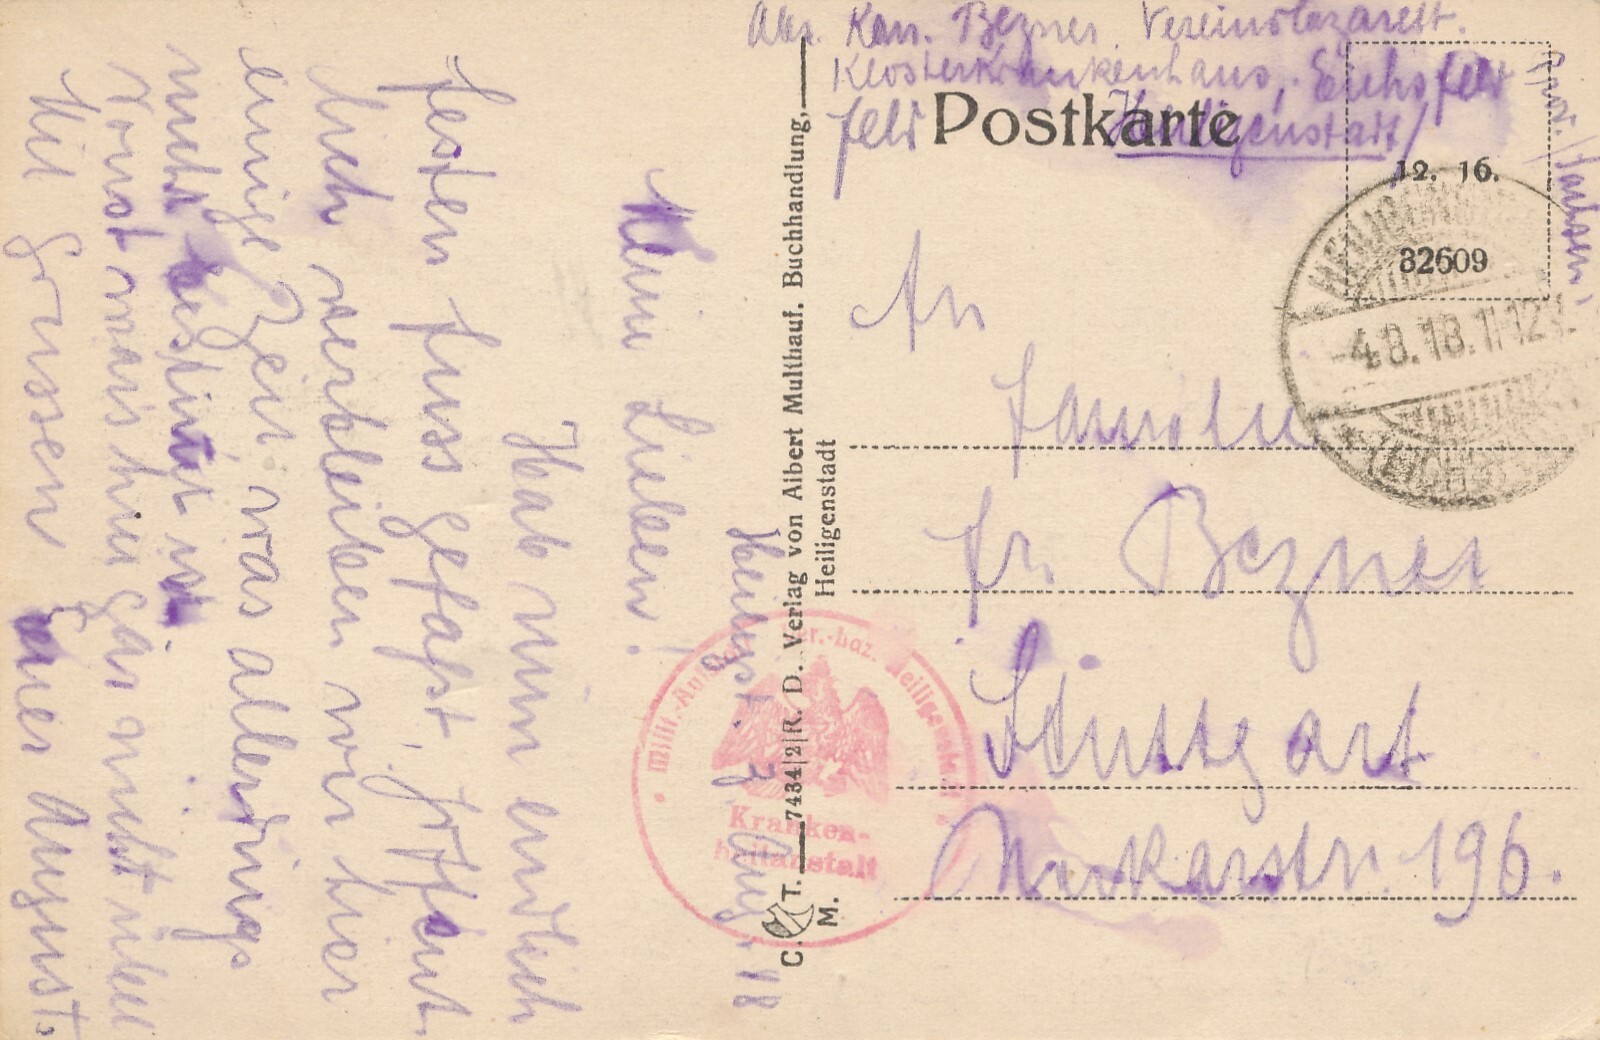 Abs. Kan. Bezner Vereinslazarett.
Klosterkrankenhaus, Eichsfeld
feld Heiligenstadt/
Prov. Sachsen,
Postkarte
12. 16.
32609
4.8.18.11-12V.
An
Familie
Fr. Bezner
Stuttgart
Neckarstr. 196.
C. T. M. 7434|2|R. D. Verlag von Albert Multhauf. Buchhandlung,
Heiligenstadt
Milit. Ver.-Laz. Heiligenstadt
Kranken-
heilanstalt
Heiligst. 3 Aug 18
Meine Lieben!
Hab nun endlich
festen Fuss gefasst, hoffent
lich verbleiben wir hier
einige Zeit was allerdings
nicht bestimt ist.
Sonst wärs hier gar nicht übel
Mit Grussen Euer August.